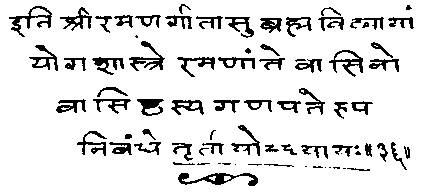 इति श्रीरमणगीतासु ब्रह्मविद्यायां
योगशास्त्रे रमणांतेवासिनो
वासिष्ठस्य गणपतेरुप
निबंधे तृतीयोऽध्यायः॥३६॥